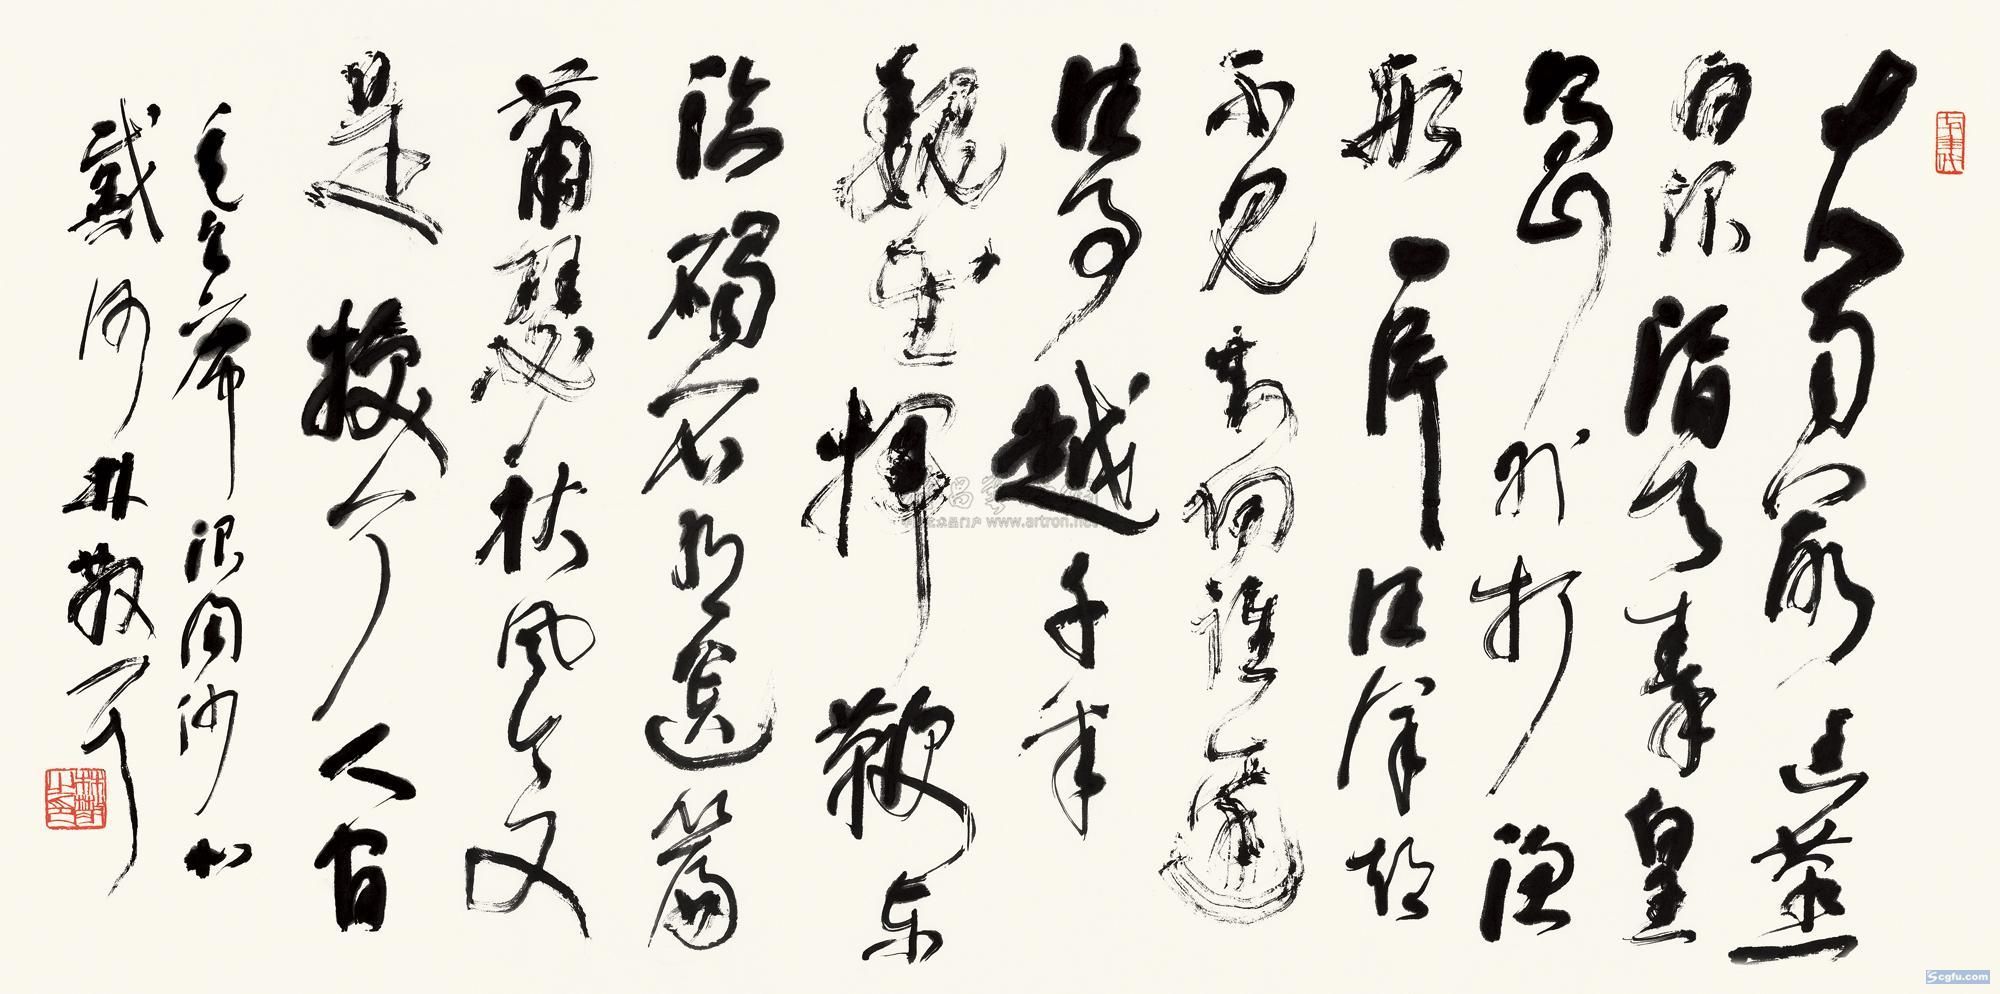 大雨落幽燕
白浪滔天秦皇
島外打漁
船一片汪洋都
不見知向誰邊
往事越千年
魏武揮鞭東
臨碣石有遺篇
蕭瑟秋風今又
是換了人間
毛主席浪淘沙北
戴河林散耳
林散之印
www.artron.net
Scgfu.com